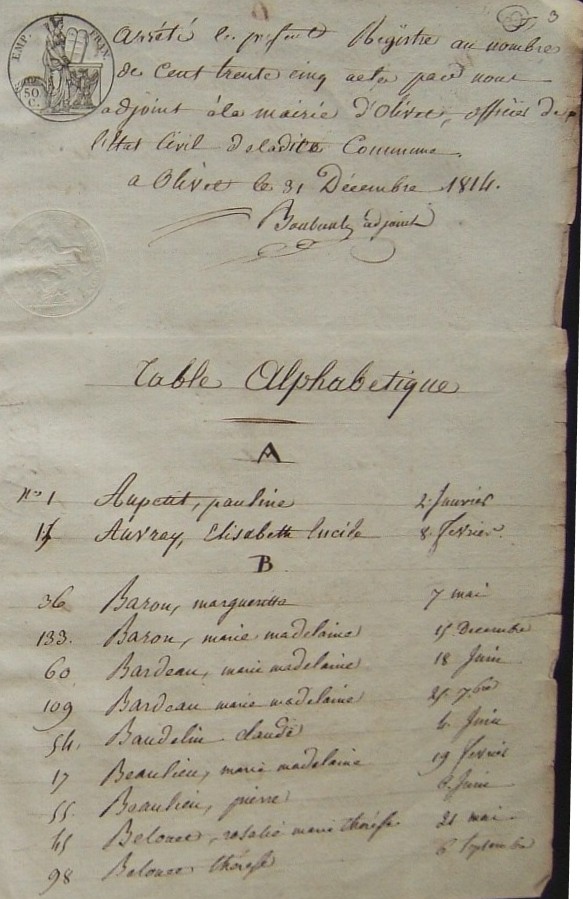 3
EMP. FRAN.
50
C.
Arrêté le présent Régistre au nombre
de Cent trente cinq actes par nous
adjoint à la mairie d'Olivet, officier de
l'état Civil de ladite Commune
a Olivet le 31 Décembre 1814.
adjoint
Table Alphabetique
A
No 1 Aupetit, pauline 2 Janvier
Auvray, Elisabeth lucile 8 fevrier
B
36 Baron, marguerite 7 mai
133. Baron, marie madelaine 15 Decembre
60 Bardeau, marie madelaine 18 Juin
109 Bardeau marie madelaine 7.bre
54. Baudelin claude 4 Juin
17 Beaulieu, marie madelaine 19 fevrier
55 Beaulieu, pierre Juin
45 rosalie marie thérèse 21 mai
98 thérèse 6 Septembre